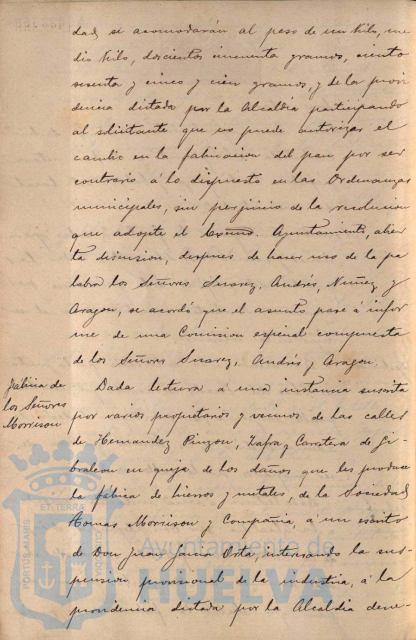 dad, si acomodarán al peso de un kilo, me
dio kilo, doscientos cincuenta gramos, ciento
sesenta y cinco y cien gramos, y de la provi
dencia dictada por la Alcaldia participando
al solicitante que no puede autorizar el
cambio en la fabricacion del pan por ser
contrario á lo dispuesto en las Ordenanzas
municipales, sin perjuicio de la resolucion
que adopte el Excmo. Ayuntamiento, abier
ta discusion, despues de hacer uso de la pa
labra los Señores Suarez, Andrés, Nuñez y
Aragon, se acordó que el asunto pase á infor
me de una Comision especial compuesta
de los Señores Suarez, Andrés y Aragon.
Fabrica de
los Señores
Morrison
Dada lectura á una instancia suscrita
por varios propietarios y vecinos de las calles
de Hernandez Pinzon, Zafra y Carretera de Gi
braleon en queja de los daños que les produce
la fábrica de hierros y metales, de la Sociedad
Tomas Morrison y Compañia, á un escrito
de Don Juan Garcia Orta, interesando la sus
pension provisional de la industria, á la
providencia dictada por la Alcaldia dene-
PORTUS MARIS
ET TERRÆ
CUSTODIA
Ayuntamiento de
HUELVA